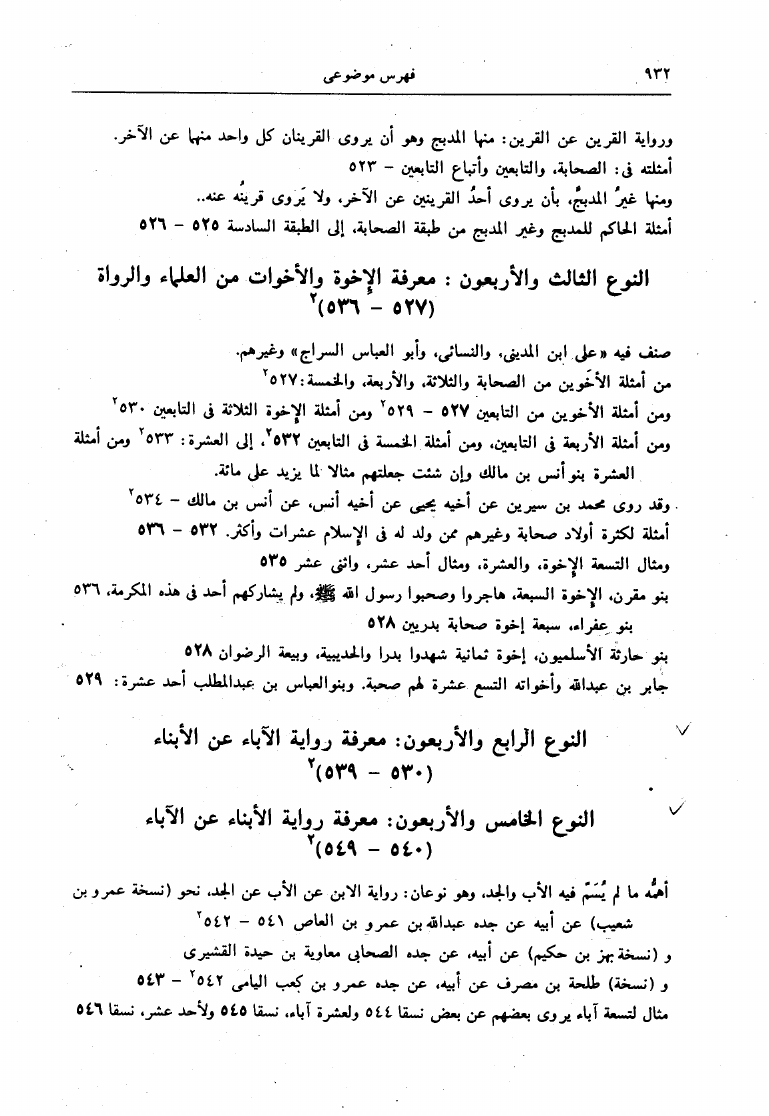 ٩٣٢
فهرس موضوعى
ورواية القرين عن القرين: منها المدبج وهو أن يروى القرينان كل واحد منها عن الآخر.
أمثلته فى: الصحابة، والتابعين وأتباع التابعين – ٥٢٣
ومنها غيرُ المدبجُّ، بأن يروى أحدُ القرينين عن الآخر، ولا يَروى قرينُه عنه..
أمثلة الحاكم للمدبج وغير المدبج من طبقة الصحابة، إلى الطبقة السادسة ٥٢٥ – ٥٢٦
النوع الثالث والأربعون : معرفة الإخوة والأخوات من العلماء والرواة
(٥٢٧ – ٥٣٦)٢
صنف فيه «على ابن المدينى، والنسائى، وأبو العباس السراج» وغيرهم.
من أمثلة الأخَوين من الصحابة والثلاثة، والأربعة، والخمسة: ٥٢٧٢
ومن أمثلة الأخوين من التابعين ٥٢٧ – ٥٢٩٢ ومن أمثلة الإخوة الثلاثة فى التابعين ٥٣٠٢
ومن أمثلة الأربعة فى التابعين، ومن أمثلة الخمسة فى التابعين ٥٣٢٢، إلى العشرة: ٥٣٣٢ ومن أمثلة
العشرة بنو أنس بن مالك وإن شئت جعلتهم مثالا لما يزيد على مائة.
وقد روى محمد بن سيرين عن أخيه يحيى عن أخيه أنس، عن أنس بن مالك – ٥٣٤٢
أمثلة لكثرة أولاد صحابة وغيرهم ممن ولد له فى الإسلام عشرات وأكثر. ٥٣٢ – ٥٣٦
ومثال التسعة الإخوة، والعشرة، ومثال أحد عشر، واثنى عشر ٥٣٥
بنو مقرن، الإخوة السبعة، هاجروا وصحبوا رسول الله ﷺ، ولم يشاركهم أحد فى هذه المكرمة، ٥٣٦
بنو عفراء، سبعة إخوة صحابة بدريين ٥٢٨
بنو حارثة الأسلميون، إخوة ثمانية شهدوا بدرا والحديبية، وبيعة الرضوان ٥٢٨
جابر بن عبدالله وأخواته التسع عشرة لهم صحبة. وبنوالعباس بن عبدالمطلب أحد عشرة: ٥٢٩
النوع الرابع والأربعون: معرفة رواية الآباء عن الأبناء
(٥٣٠ – ٥٣٩)٢
النوع الخامس والأربعون: معرفة رواية الأبناء عن الآباء
(٥٤٠ – ٥٤٩)٢
أهمُّه ما لم يُسَمّ فيه الأب والجد، وهو نوعان: رواية الابن عن الأب عن الجد، نحو (نسخة عمرو بن
شعيب) عن أبيه عن جده عبدالله بن عمرو بن العاص ٥٤١ – ٥٤٢٢
و (نسخة بهز بن حكيم) عن أبيه، عن جده الصحابى معاوية بن حيدة القشيرى
و (نسخة) طلحة بن مصرف عن أبيه، عن جده عمرو بن كعب اليامى ٥٤٢٢ – ٥٤٣
مثال لتسعة آباء يروى بعضهم عن بعض نسقا ٥٤٤ ولعشرة آباء، نسقا ٥٤٥ ولأحد عشر، نسقا ٥٤٦